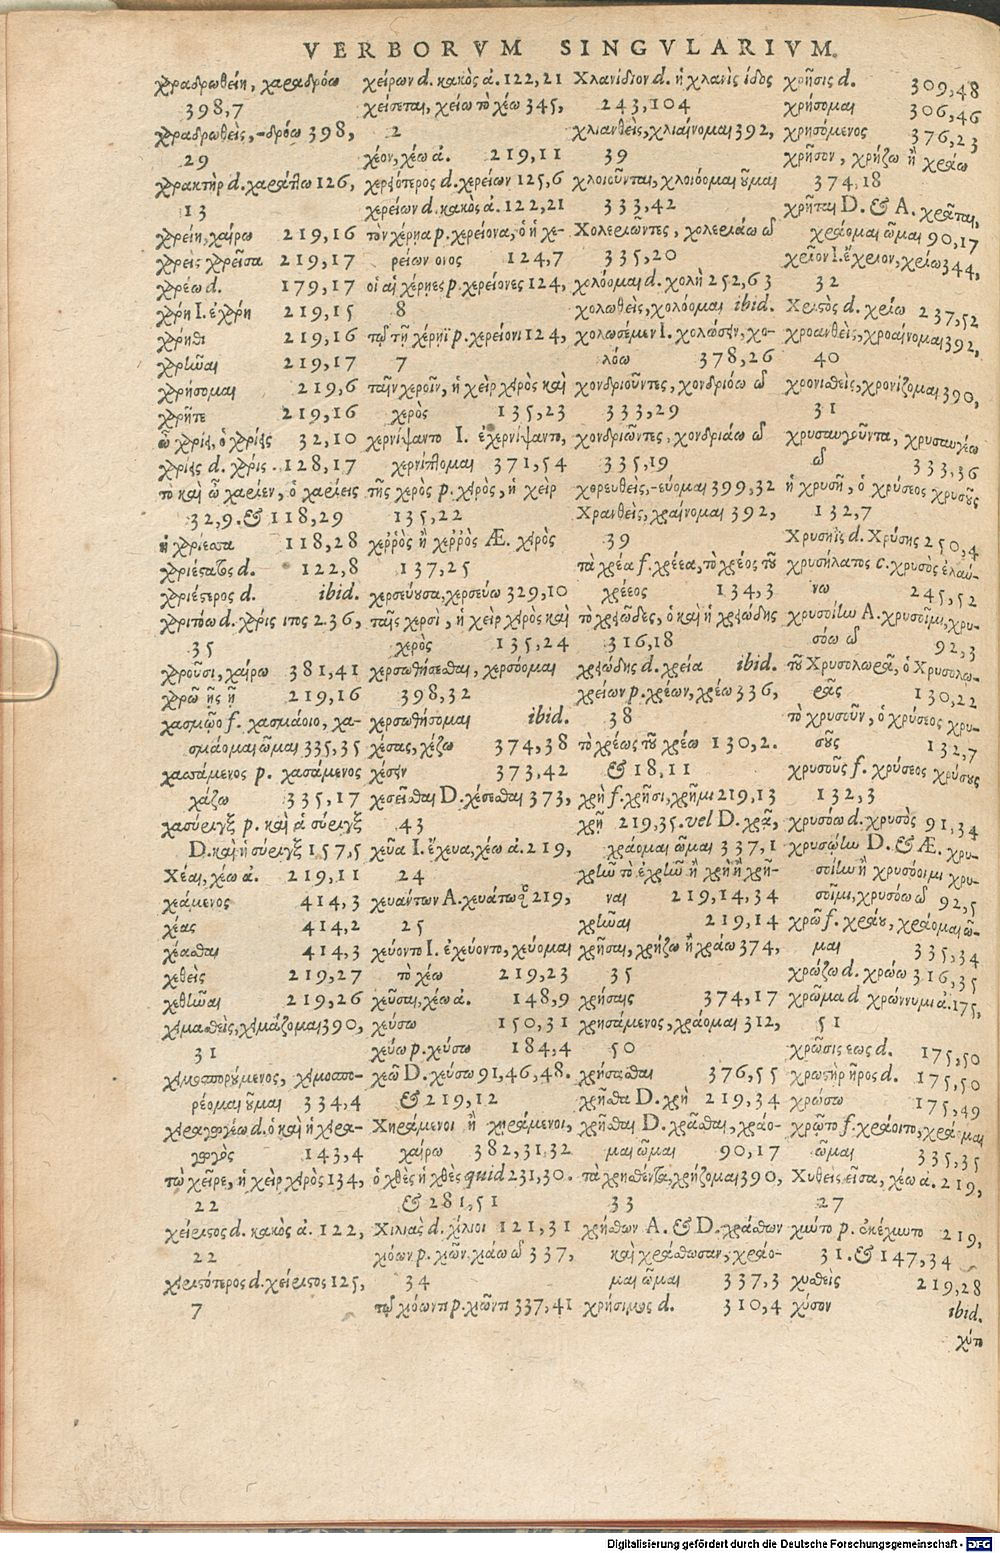 VERBORVM SINGVLARIVM.
χαραδρωθείη, χαραδρόω
398,7
χαραδρωθεὶς, -δρόω 398,
29
χαρακτὴρ d. χαράττω 126,
13
χαρείη, χαίρω 219,16
χαρεὶς χαρεῖσα 219,17
χαρέω d. 179,17
χάρη I. ἐχάρη 219,15
χάρηθι 219,16
χαρῆναι 219,17
χαρήσομαι 219,6
χαρῆτε 219,16
ὦ χαρίεν, ὁ χαρίεις 32,10
χαρίεις d. χάρις. 128,17
το καὶ ὦ χαρίεν, ὁ χαρίεις
32,9. & 118,29
ἡ χαρίεσσα 118,28
χαριέστατος d. 122,8
χαριέστερος d. ibid.
χαριτόω d. χάρις ιτος 236,
35
χαροῦσι, χαίρω 381,41
χαρῶ ῇς ῇ 219,16
χασμῷο f. χασμάοιο, χα-
σμάομαι ῶμαι 335,35
χασσάμενος p. χασάμενος
χάζω 335,17
χασύριγξ p. καὶ ἁ σύριγξ
D. καὶ ἡ σύριγξ 157,5
Χέαι, χέω ἀ. 219,11
χεάμενος 414,3
χέας 414,2
χέασθαι 414,3
χεθεὶς 219,27
χεθῆναι 219,26
χειμασθεὶς, χειμάζομαι 390,
31
ρέομαι οῦμαι 334,4
143,4
τὼ χεῖρε, ἡ χεὶρ χειρὸς 134,
22
χείριστος d. κακὸς ἀ. 122,
22
χειριστότερος d. χείριστος 125,
7
χείρων d. κακὸς ἀ. 122,21
χείσεται, χείω τὸ χέω 345,
2
χέον, χέω ἀ. 219,11
χερειότερος d. χερείων 125,6
χερείων d. κακὸς ἀ. 122,21
τὸν χέρηα p. χερείονα, ὁ ἡ χε-
ρείων ονος 124,7
οἱ αἱ χέρηες p. χερείονες 124,
8
τῷ τῇ χέρηϊ p. χερείονι 124,
7
ταῖν χεροῖν, ἡ χεὶρ χειρὸς καὶ
χερὸς 135,23
χερνίψαντο I. ἐχερνίψαντο,
χερνίπτομαι 371,54
τῆς χερὸς p. χειρὸς, ἡ χεὶρ
135,22
χερρὸς ἢ χέρρος Æ. χειρὸς
137,25
χερσεύουσα, χερσεύω 329,10
ταῖς χερσὶ, ἡ χεὶρ χειρὸς καὶ
χερὸς 135,24
χερσωθήσεσθαι, χερσόομαι
398,32
χερσωθήσομαι ibid.
χέσας, χέζω 374,38
χέσειν 373,42
χεσεῖσθαι D. χέσεσθαι 373,
43
χεῦα I. ἔχευα, χέω ἀ. 219,
24
χευάντων A. χευάτωσαν 219,
25
χεύοντο I. ἐχεύοντο, χεύομαι
τὸ χέω 219,23
χεῦσαι, χέω ἀ. 148,9
χεύσω 150,31
χεύω p. χεύσω 184,4
χεῶ D. χεύσω 91,46,48.
& 219,12
Χηράμενοι ἢ χηράμενοι,
χαίρω 382,31,32
ὁ χθὲς ἡ χθὲς quid 231,30.
& 281,51
Χιλιὰς d. χίλιοι 121,31
χιόων p. χιῶν. χιάω ῶ 337,
34
τῷ χιόωντι p. χιῶντι 337,41
Χλανίδιον d. ἡ χλανὶς ίδος
243,104
χλιανθεὶς, χλιαίνομαι 392,
39
χλοιοῦνται, χλοιόομαι οῦμαι
333,42
Χολεριῶντες, χολεριάω ῶ
335,20
χολόομαι d. χολὴ 252,63
χολωθεὶς, χολόομαι ibid.
χολωσέμεν I. χολώσειν, χο-
λόω 378,26
χονδριοῦντες, χονδριόω ῶ
333,29
χονδριῶντες, χονδριάω ῶ
335,19
χορευθεὶς, -εύομαι 399,32
Χρανθεὶς, χραίνομαι 392,
39
τὰ χρέα f. χρέεα, τὸ χρέος τοῦ
χρέεος 134,3
τὸ χρειῶδες, ὁ καὶ ἡ χρειώδης
316,18
χρειώδης d. χρεία ibid.
χρείων p. χρέων, χρέω 336,
38
τὸ χρέως τοῦ χρέω 130,2.
& 18,11
χρὴ f. χρῆσι, χρῆμι 219,13
χρῇ 219,35. vel D. χρᾷ,
χράομαι ῶμαι 337,1
χρῆν τὸ ἐχρῆν ἢ χρὴ ἢ χρῆ-
ναι 219,14,34
χρῆναι 219,14
χρῆσαι, χρήζω ἢ χράω 374,
35
χρήσαις 374,17
χρησάμενος, χράομαι 312,
50
χρήσασθαι 376,55
χρῆσθα D. χρὴ 219,34
χρῆσθαι D. χρᾶσθαι, χράο-
μαι ῶμαι 90,17
τὰ χρησθέντα, χρήζομαι 390,
33
χρήσθων A. & D. χράσθων
καὶ χράσθωσαν, χράο-
μαι ῶμαι 337,3
χρήσιμος d. 310,4
χρῆσις d. 309,48
χρήσομαι 306,46
χρησόμενος 376,23
χρῆσον, χρήζω ἢ χράω
374,18
χρῆται D. & A. χρᾶται,
χράομαι ῶμαι 90,17
χρῖον I. ἔχριον, χρίω 344,
32
Χριστὸς d. χρίω 237,52
χροανθεὶς, χροαίνομαι 392,
40
χρονισθεὶς, χρονίζομαι 390,
31
χρυσαυγοῦντα, χρυσαυγέω
ῶ 333,36
ἡ χρυσῆ, ὁ χρύσεος χρυσοῦς
132,7
Χρυσηῒς d. Χρύσης 250,4
χρυσήλατος c. χρυσὸς ἐλαύ-
νω 245,52
χρυσοίην A. χρυσοῖμι, χρυ-
σόω ῶ 92,3
τοῦ Χρυσολωρᾶ, ὁ Χρυσολω-
ρᾶς 130,22
τὸ χρυσοῦν, ὁ χρύσεος χρυ-
σοῦς 132,7
χρυσοῦς f. χρύσεος χρύσους
132,3
χρυσόω d. χρυσὸς 91,34
χρυσῴην D. & Æ. χρυ-
σοίην ἢ χρυσόοιμι χρυ-
σοῖμι, χρυσόω ῶ 92,5
χρῶ f. χράου, χράομαι ῶ-
μαι 335,34
χρώζω d. χρώω 316,35
χρῶμα d χρώννυμι ἀ. 175,
51
χρῶσις εως d. 175,50
χρωστὴρ ῆρος d. 175,50
χρώσω 175,49
χρῷτο f. χράοιτο, χράομαι
ῶμαι 335,35
Χυθεὶς εῖσα, χέω ἀ. 219,
27
31. & 147,34
χυσθεὶς 219,28
χύσον ibid.
Digitalisierung gefördert durch die Deutsche Forschungsgemeinschaft - DFG